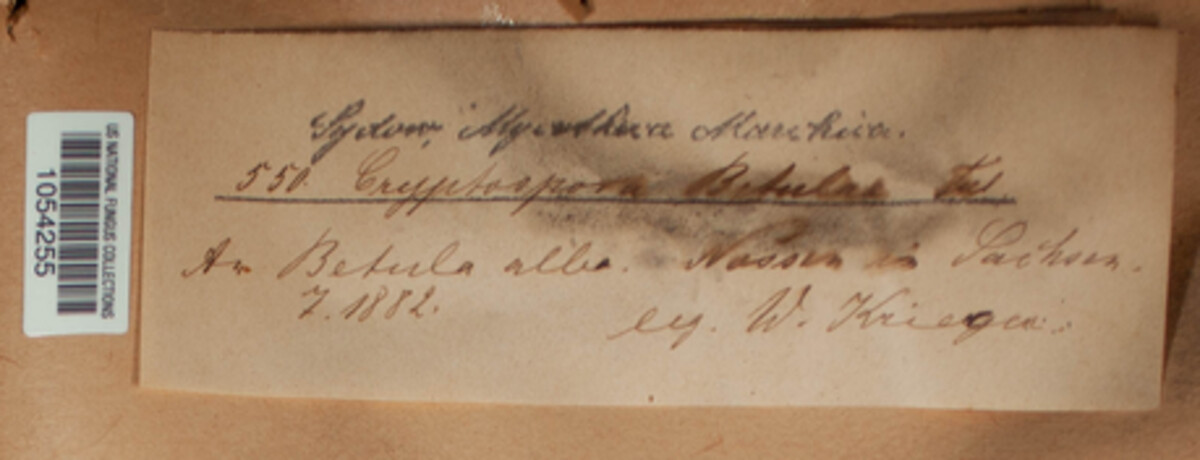 Sydow, Mycotheca Marchica.
550. Cryptospora Betulae Tul.
An Betula alba. Nossen in Sachsen.
7.1882. leg. W. Krieger.
US NATIONAL FUNGUS COLLECTIONS
1054255